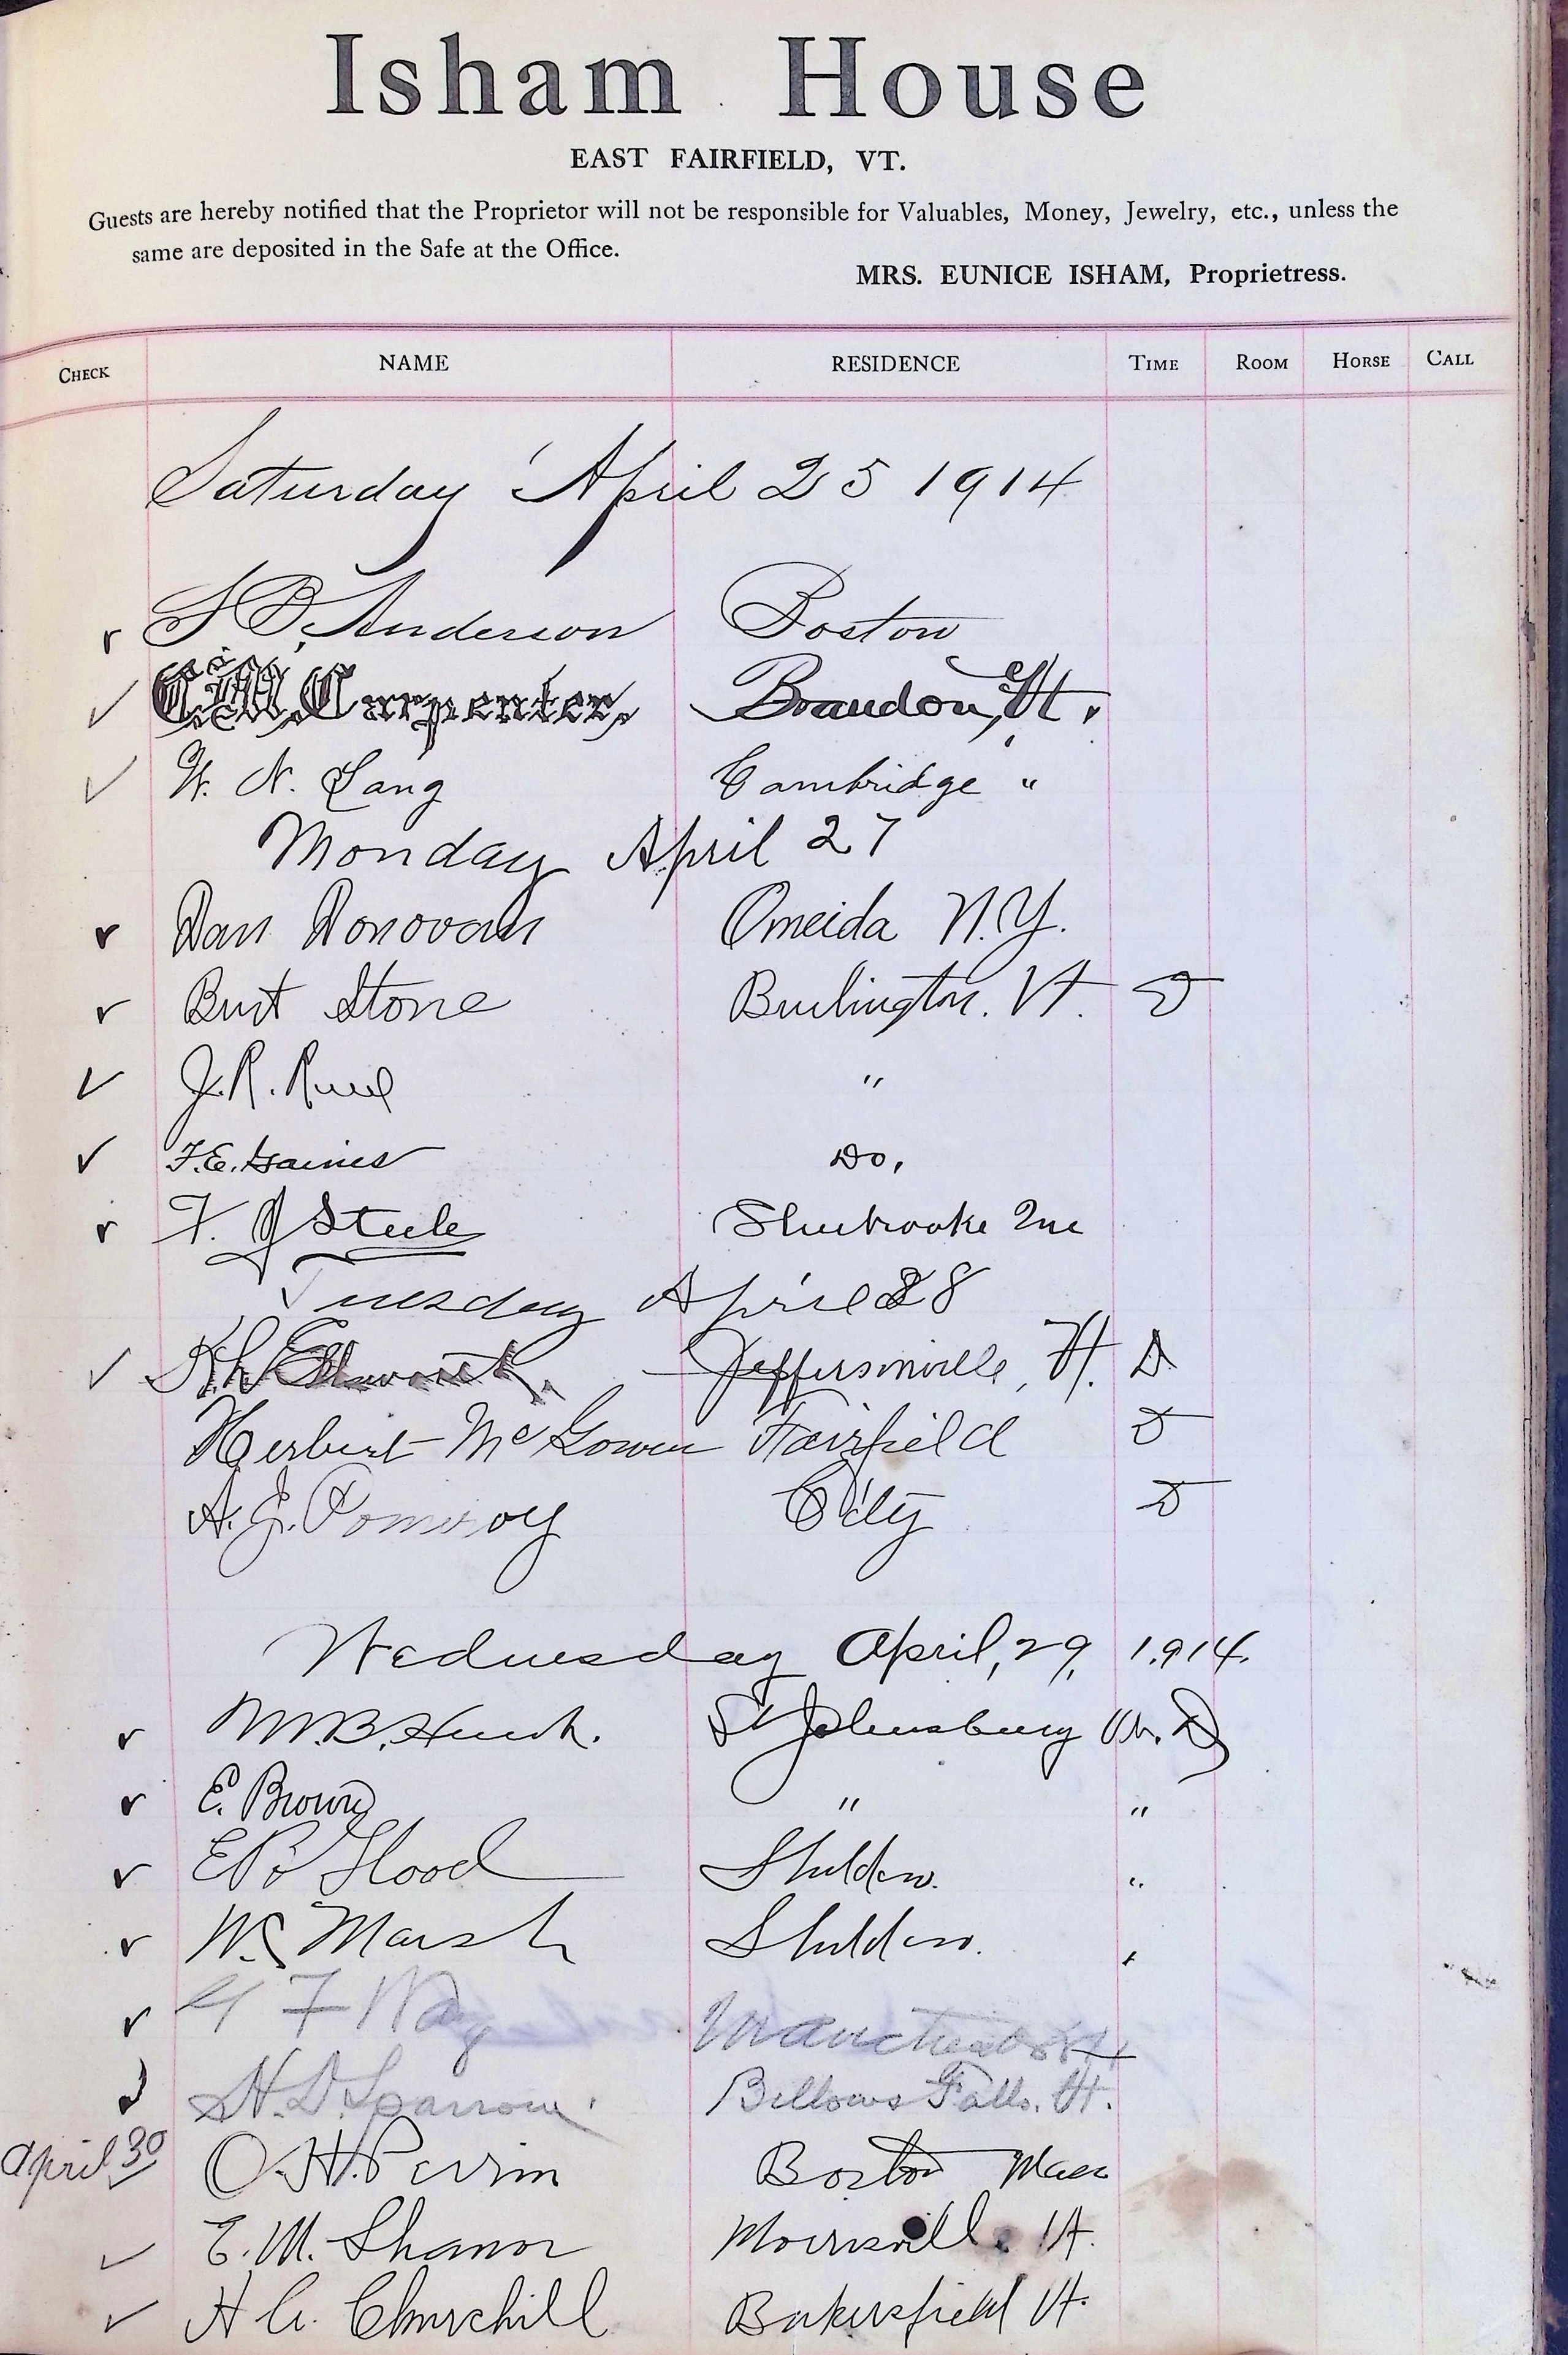 Isham House
EAST FAIRFIELD, VT.
Guests are hereby notified that the Proprietor will not be responsible for Valuables, Money, Jewelry, etc., unless the
same are deposited in the Safe at the Office.
MRS. EUNICE ISHAM, Proprietress.
CHECK NAME RESIDENCE TIME ROOM HORSE CALL
Saturday April 25 1914
S. D. Anderson Boston
C.W. Carpenter, Brandon, Vt.
W. N. Lang Cambridge "
Monday April 27
Dan Donovan Oneida N.Y.
Burt Stone Burlington. Vt. D
J. R. "
F. E. Gaines Do,
F. J Steele Sherbrooke Que
Tuesday April 28
K.L. Ellsworth. Jeffersonville, Vt. D
Herbert McGowen Fairfield D
A. J. Pomeroy City D
Wednesday April, 29, 1914.
M. B. St Johnsbury Vt. D
E. Brown " "
E B Flood Sheldon. "
W. Marsh Sheldon. "
F Manchester
H. D. Sparrow. Bellows Falls. Vt.
April 30 O. H. Perrin Boston Mass
E. M. Shanor Morrisville Vt.
H A. Churchill Bakersfield Vt.